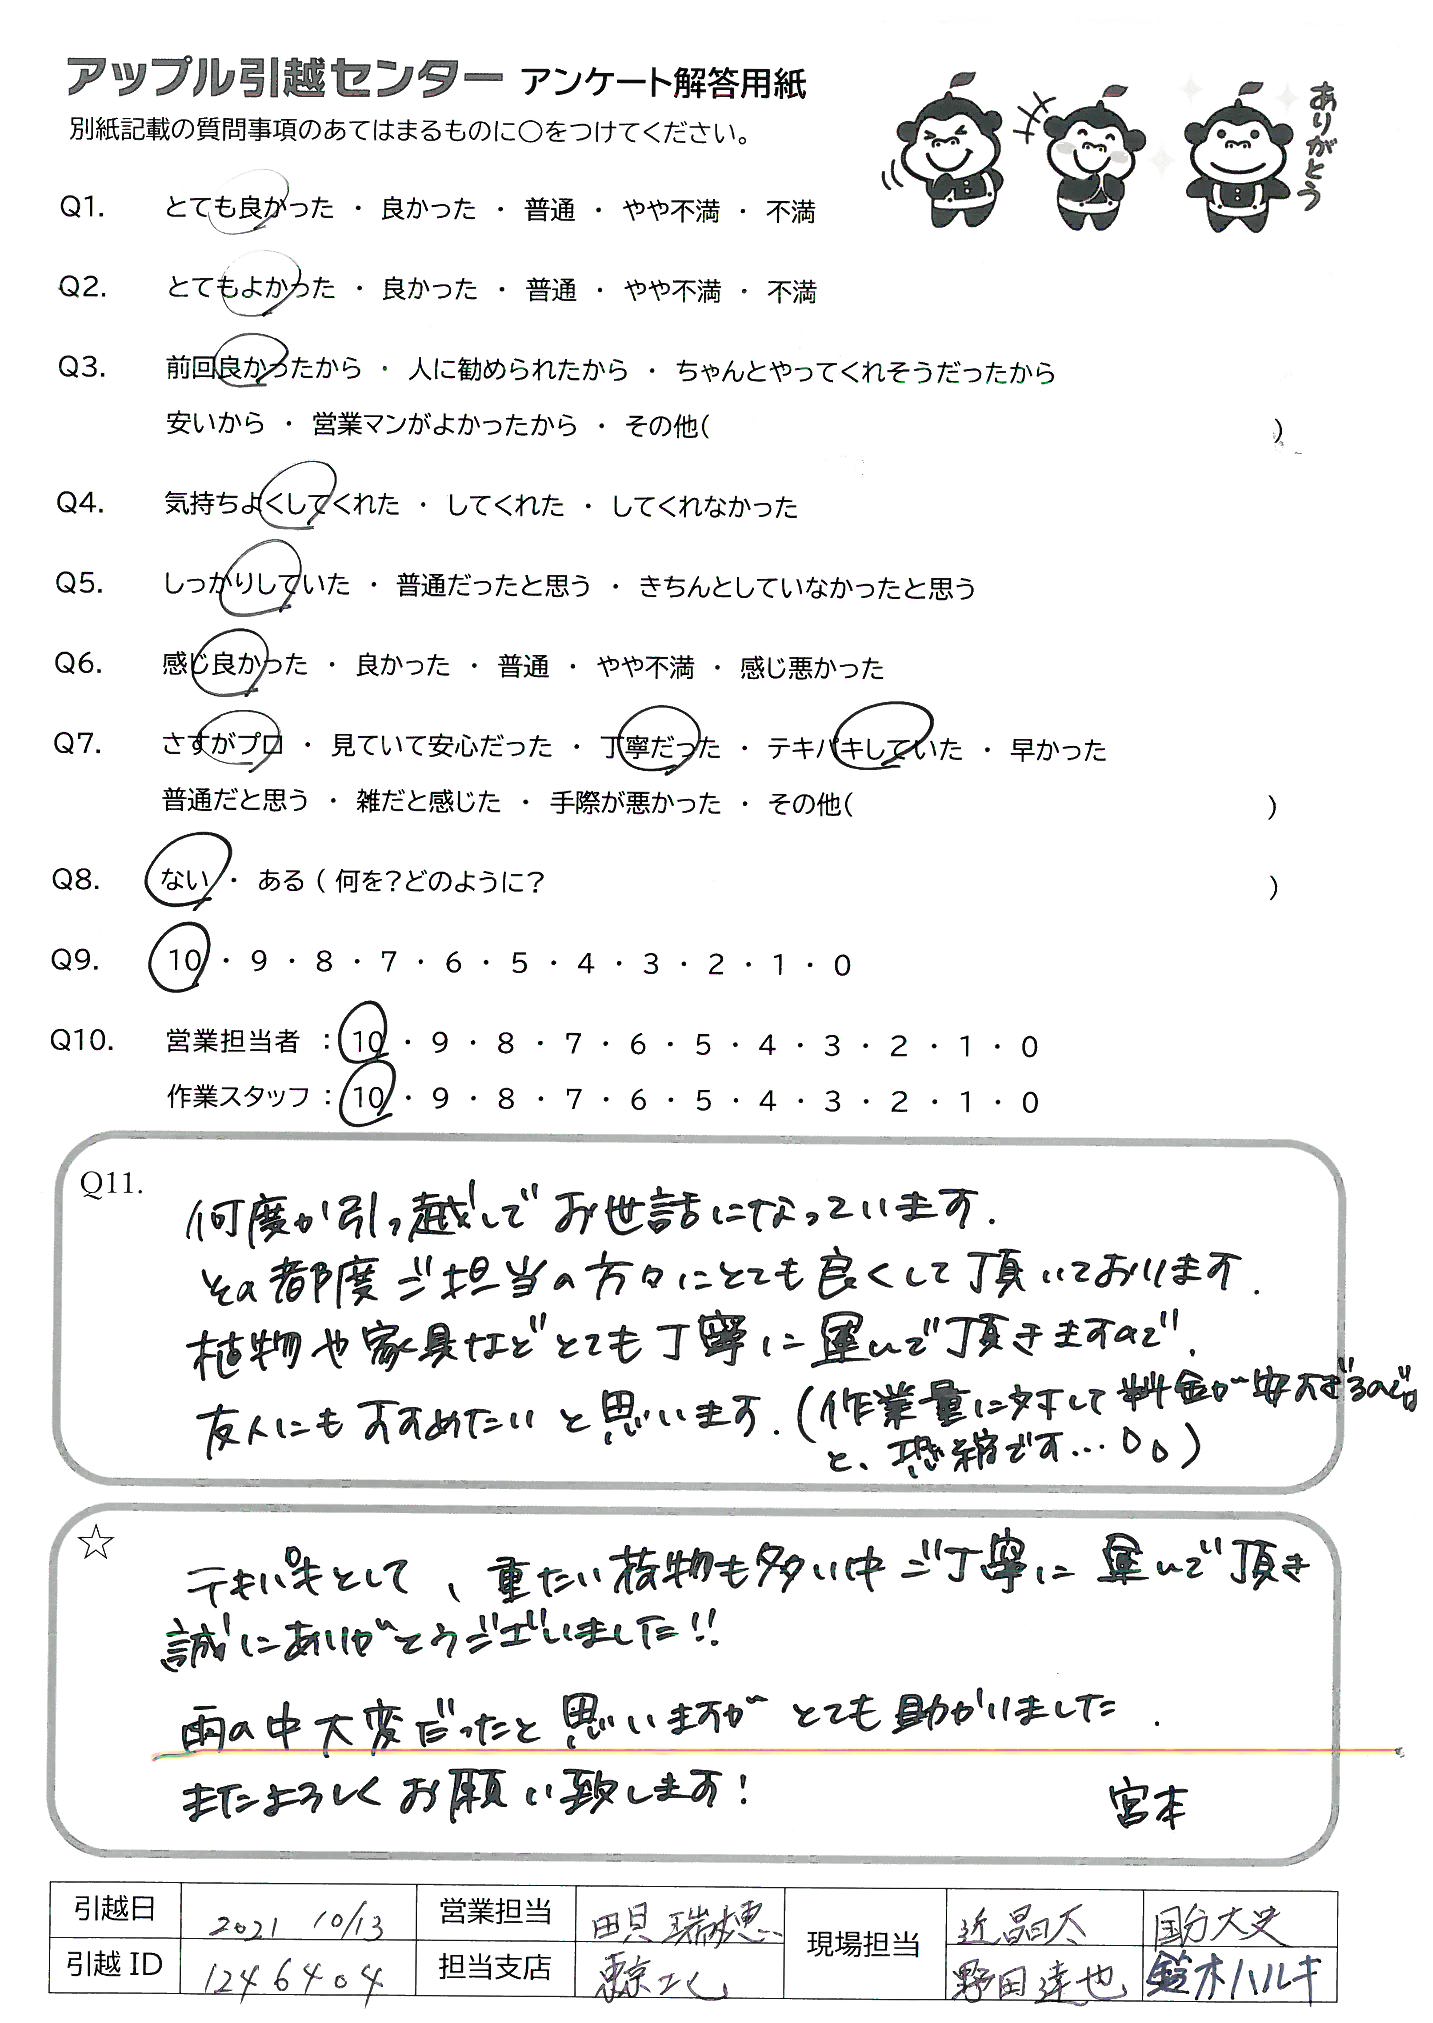 アップル引越センター アンケート解答用紙
別紙記載の質問事項のあてはまるものに〇をつけてください。
ありがとう
Q1. とても良かった ・ 良かった ・ 普通 ・ やや不満 ・ 不満
Q2. とてもよかった ・ 良かった ・ 普通 ・ やや不満 ・ 不満
Q3. 前回良かったから ・ 人に勧められたから ・ ちゃんとやってくれそうだったから
安いから ・ 営業マンがよかったから ・ その他( )
Q4. 気持ちよくしてくれた ・ してくれた ・ してくれなかった
Q5. しっかりしていた ・ 普通だったと思う ・ きちんとしていなかったと思う
Q6. 感じ良かった ・ 良かった ・ 普通 ・ やや不満 ・ 感じ悪かった
Q7. さすがプロ ・ 見ていて安心だった ・ 丁寧だった ・ テキパキしていた ・ 早かった
普通だと思う ・ 雑だと感じた ・ 手際が悪かった ・ その他( )
Q8. ない ・ ある ( 何を?どのように? )
Q9. 10 ・ 9 ・ 8 ・ 7 ・ 6 ・ 5 ・ 4 ・ 3 ・ 2 ・ 1 ・ 0
Q10. 営業担当者 : 10 ・ 9 ・ 8 ・ 7 ・ 6 ・ 5 ・ 4 ・ 3 ・ 2 ・ 1 ・ 0
作業スタッフ : 10 ・ 9 ・ 8 ・ 7 ・ 6 ・ 5 ・ 4 ・ 3 ・ 2 ・ 1 ・ 0
Q11.
何度か引っ越しでお世話になっています.
その都度ご担当の方々にとても良くして頂いております.
植物や家具などとても丁寧に運んで頂きますので、
友人にもすすめたいと思います.(作業量に対して料金が安すぎるのでは
と、恐縮です...)
☆
テキパキとして、重たい荷物も多い中ご丁寧に運んで頂き
誠にありがとうございました!!
雨の中大変だったと思いますがとても助かりました.
またよろしくお願い致します!
宮本
引越日 2021 10/13 営業担当 現場担当 近 晶太 国分大史
引越 ID 1246404 担当支店 東京北 野田達也 鈴木ハルキ